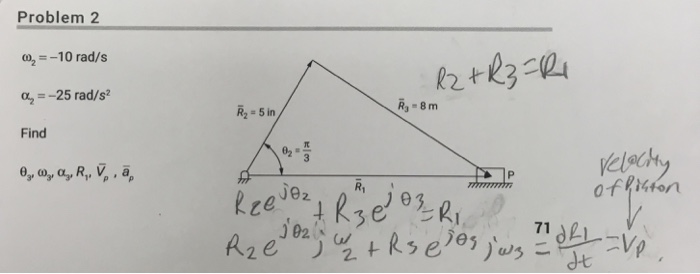 Problem 2
ω₂ = –10 rad/s
α₂ = –25 rad/s²
Find
θ₃, ω₃, α₃, R₁, V̄ₚ, āₚ
R̄₂ = 5 in
θ₂ = π/3
R̄₃ = 8 m
R̄₁
P
R2 + R3 = R1
Velocity
of Piston
R2e^jθ2 + R3e^jθ3 = R1
R2e^jθ2 jω2 + R3e^jθ3 jω3 = dR1/dt = Vp.
71